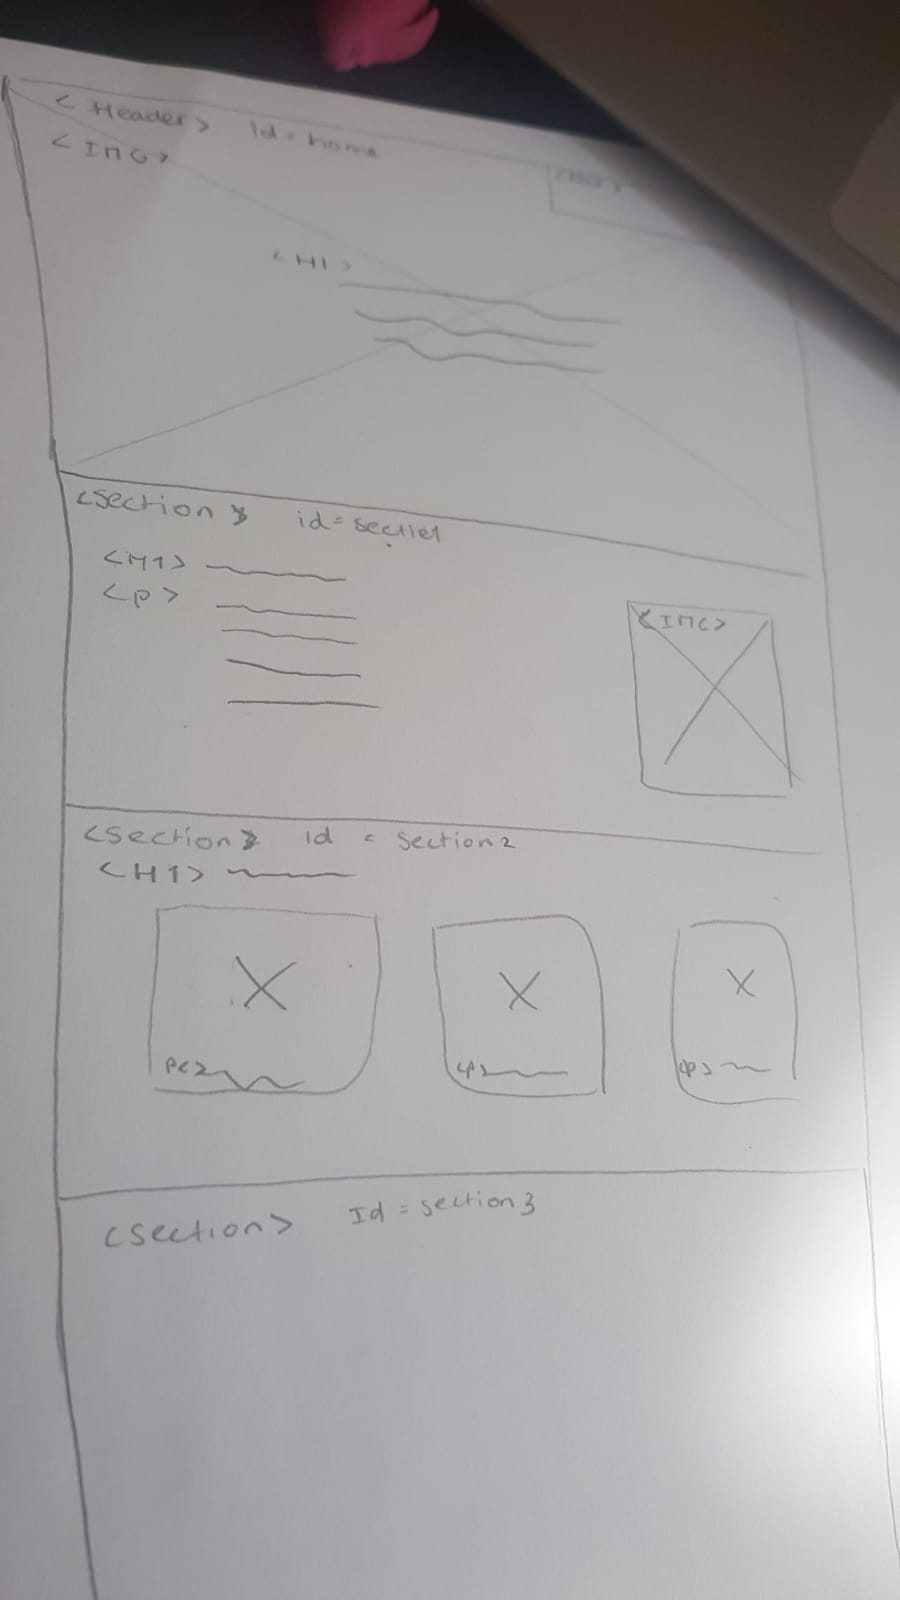 <Header> id = home
<IMG>
<H1>
<section> id = sectie1
<H1>
<p>
<IMG>
<section> id = section2
<H1>
<p> <p>
<section> Id = section3